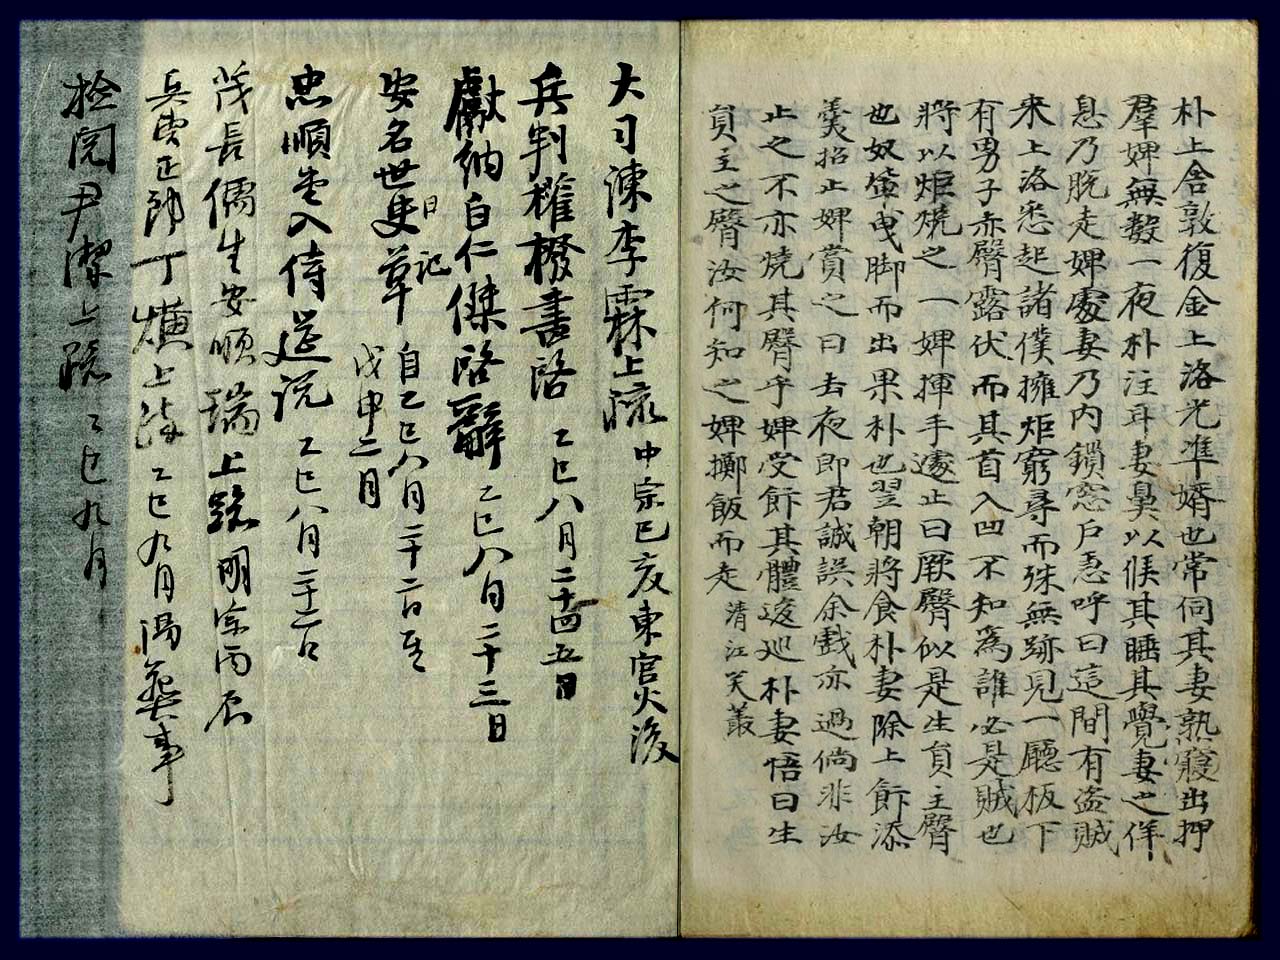 朴上舍敦復金上洛光準婿也常伺其妻熟寢出押
羣婢無數一夜朴注耳妻鼻以候其睡其覺妻之佯
息乃脫走婢處妻乃內鎖窓戶急呼曰這間有盜賊
來上洛悉起諸僕擁炬窮尋而殊無跡見一廳板下
有男子赤臀露伏而其首入凹不知爲誰必是賊也
將以炬燒之一婢揮手遽止曰厥臀似是生員主臀
也奴輩曳脚而出果朴也翌朝將食朴妻除上餠添
羹招止婢賞之曰去夜郎君誠誤余戲亦過倘非汝
止之不亦燒其臀乎婢受餠其體逡巡朴妻悟曰生
員主之臀汝何知之婢擲飯而走 清江笑叢
大司諫李霖上疏 中宗己亥東宮火後
兵判權撥書啓 乙巳八月二十四五日
獻納白仁傑啓辭 乙巳八月二十三日
安名世史草 日記 自乙巳八月二十二日至
戊申二月
忠順堂入侍筵說 乙巳八月二十二日
茂長儒生安順瑞上疏 明宗丙辰
兵曹正郞丁熿上疏 乙巳九月 葬事
檢閱尹潔上疏 乙巳九月